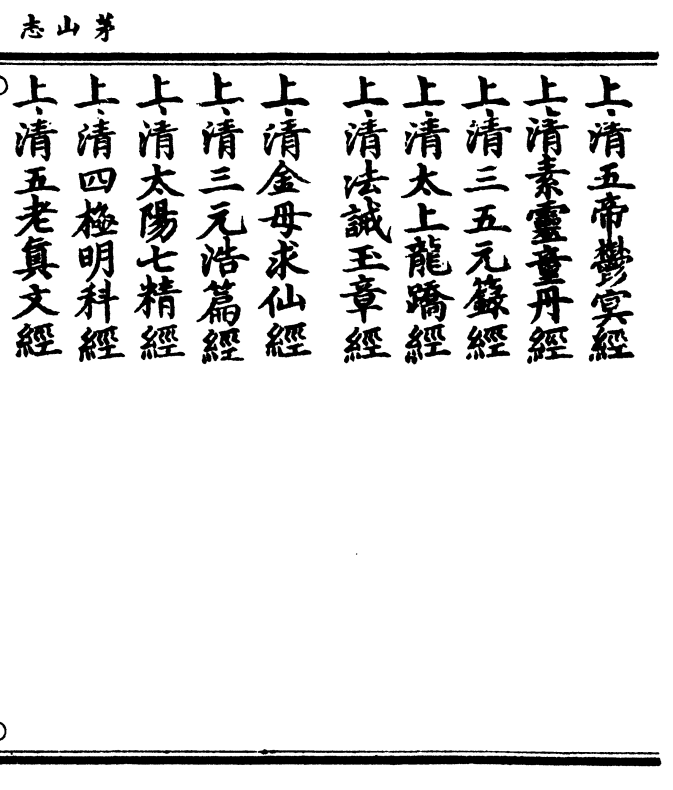 茅山志
上清五帝鬱冥經
上清素靈童丹經
上清三五元籙經
上清太上龍蹻經
上清法誡玉章經
上清金母求仙經
上清三元浩篇經
上清太陽七精經
上清四極明科經
上清五老真文經